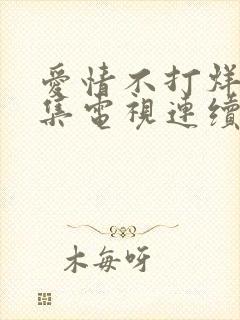 愛情不打烊
集電視連續
木每呀